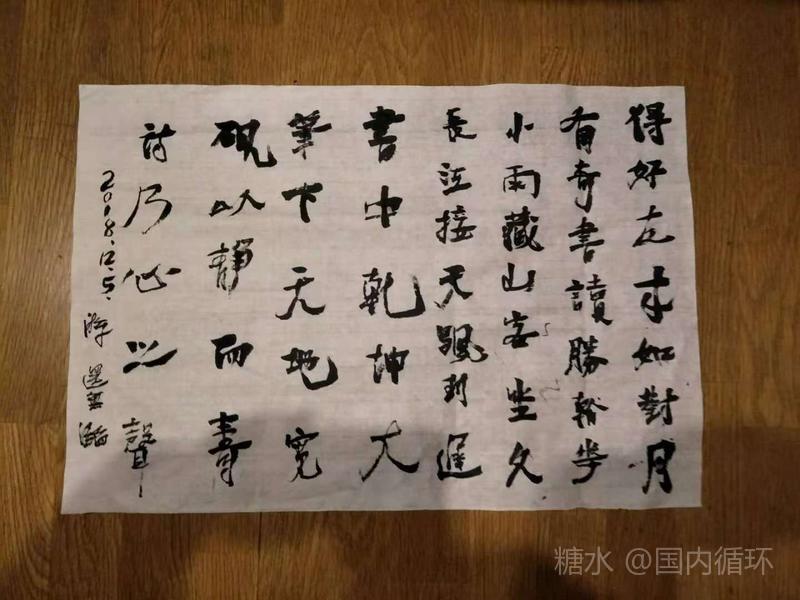 得好友来如對月
有奇書讀勝看花
小雨藏山客坐久
長江接天颿到遲
書中乾坤大
筆下天地宽
硯以靜而壽
詩乃心之聲
2018.12.5.
糖水 @国内循环